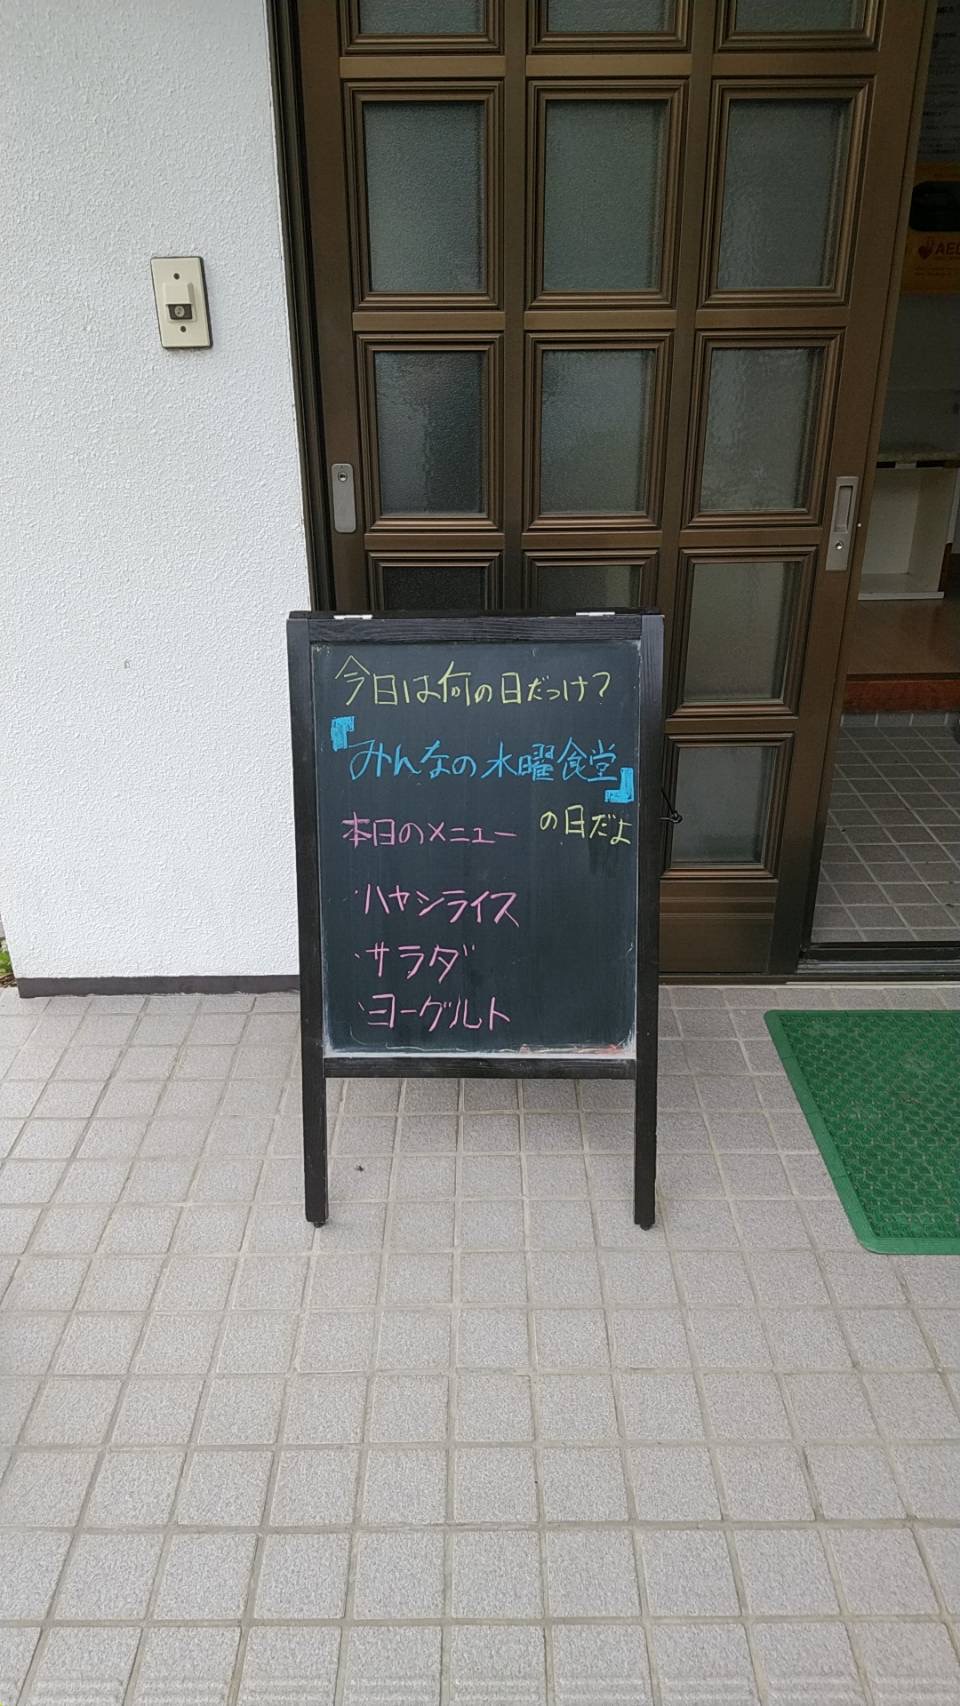 今日は何の日だっけ?
『みんなの水曜食堂』
の日だよ
本日のメニュー
・ハヤシライス
・サラダ
・ヨーグルト
AED